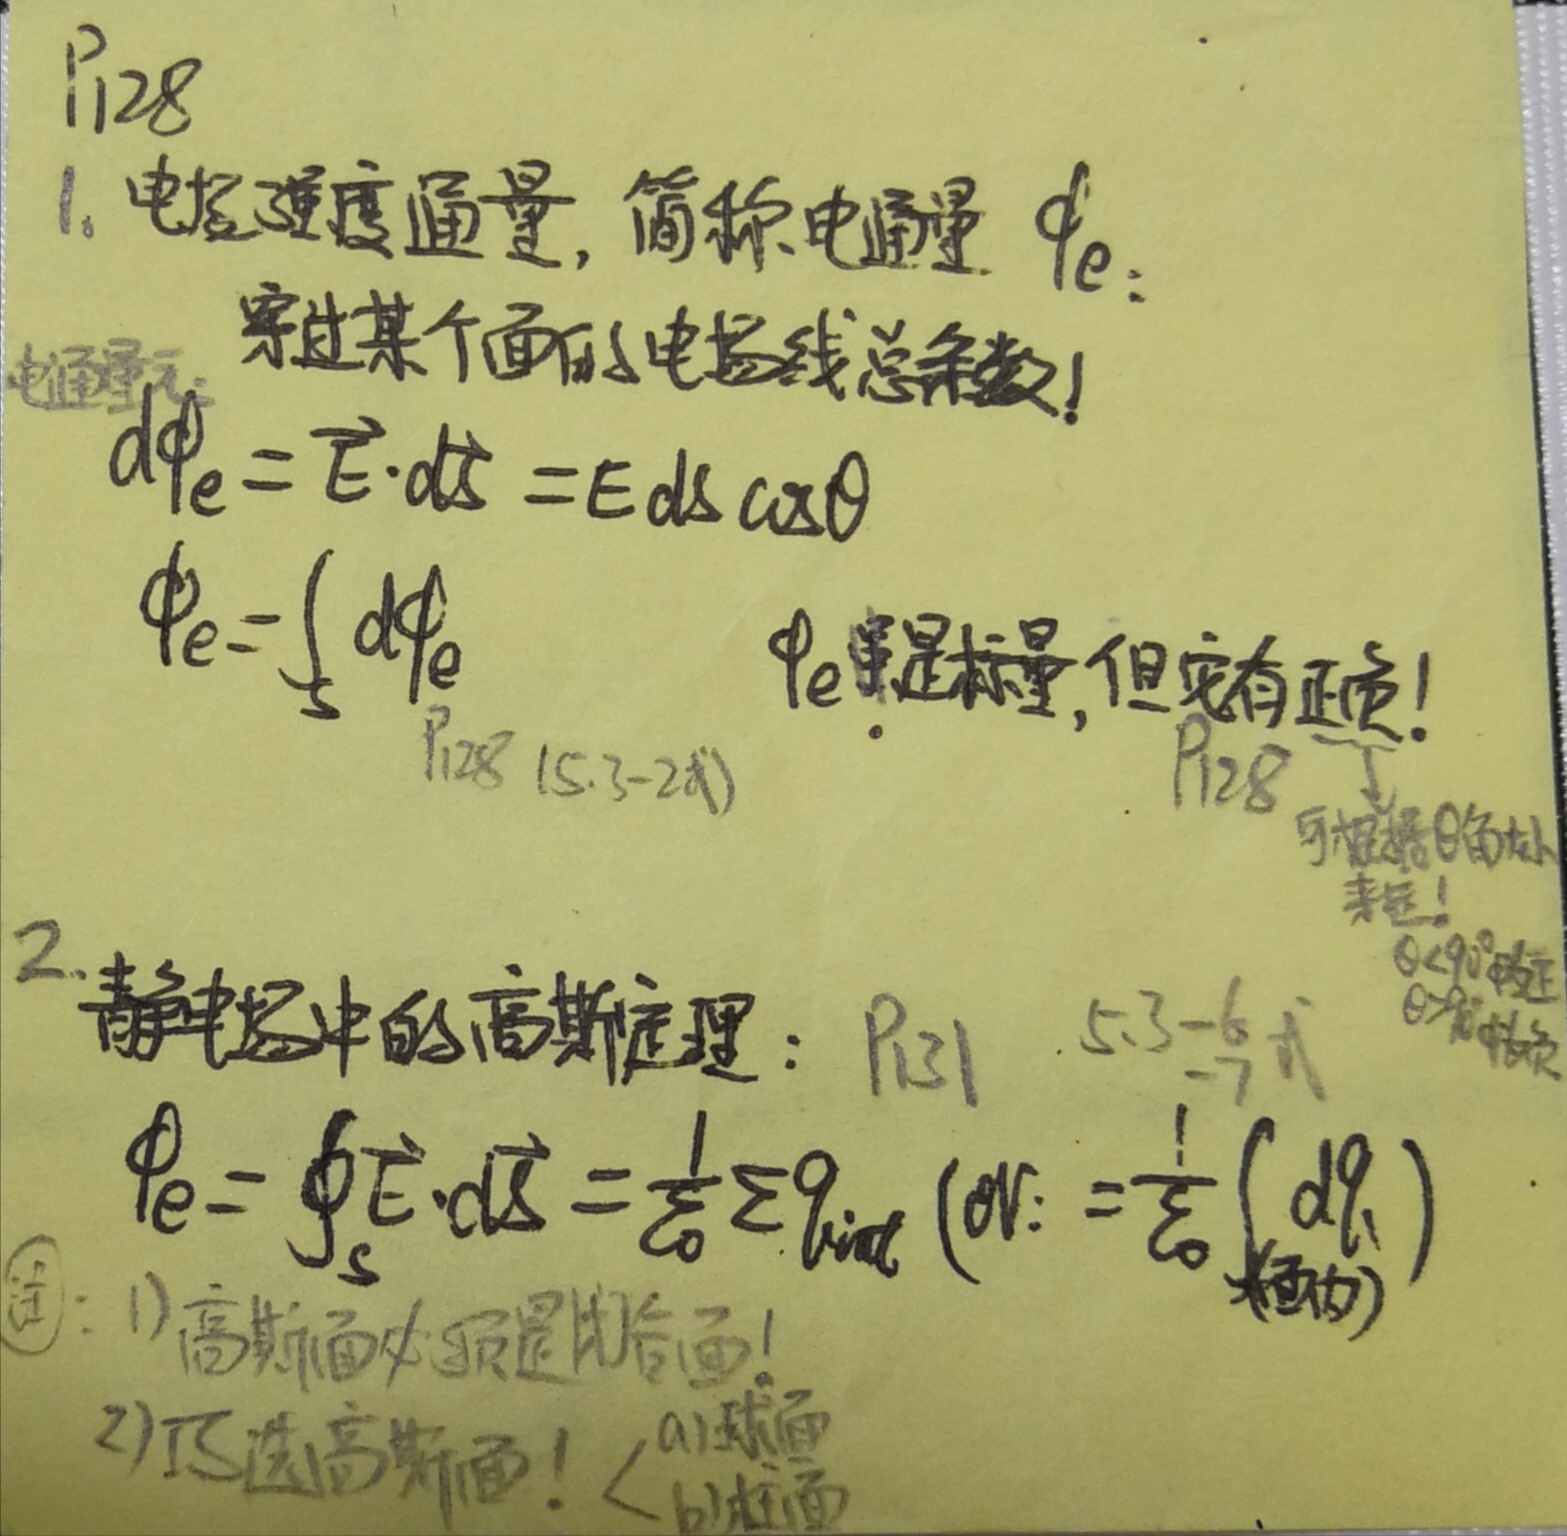 P128
1. 电场强度通量,简称电通量 φe:
穿过某个面的电场线总条数!
电通量元:
dφe = E⃗·dS⃗ = E ds cosθ
φe = ∫s dφe
φe虽是标量,但它有正负!
P128 (5.3-2式)
P128 ↓
可根据θ角大小
来定!
θ<90°时φe正
θ>90°时φe负
2.
静电场中的高斯定理: P131 5.3-6式
-7
φe = ∮s E⃗·dS⃗ = 1/ε0 Σqint (or: = 1/ε0 ∫(面内) dq)
注: 1) 高斯面必须是闭合面!
2) 巧选高斯面! < a) 球面
b) 柱面